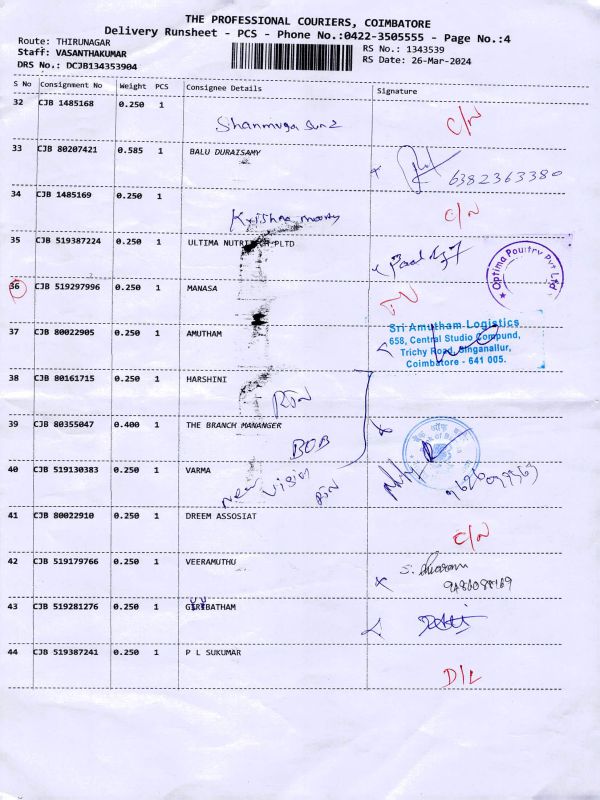 THE PROFESSIONAL COURIERS, COIMBATORE
Delivery Runsheet - PCS - Phone No.:0422-3505555 - Page No.:4
Route: THIRUNAGAR
Staff: VASANTHAKUMAR
DRS No.: DCJB134353904
RS No.: 1343539
RS Date: 26-Mar-2024
S No Consignment No Weight PCS Consignee Details Signature
32 CJB 1485168 0.250 1
Shanmuga C/N
33 CJB 80207421 0.585 1 BALU DURAISAMY
6382363380
34 CJB 1485169 0.250 1
Krishna moorthy C/N
35 CJB 519387224 0.250 1 ULTIMA NUTRITECH PLTD
Optima Poultry Pvt Ltd
36 CJB 519297996 0.250 1 MANASA
37 CJB 80022905 0.250 1 AMUTHAM
Sri Amutham Logistics
658, Central Studio Compund,
Trichy Road, Singanallur,
Coimbatore - 641 005.
38 CJB 80161715 0.250 1 HARSHINI
RTN
39 CJB 80355047 0.400 1 THE BRANCH MANANGER
BOB
40 CJB 519130383 0.250 1 VARMA
near vision RTN
41 CJB 80022910 0.250 1 DREEM ASSOSIAT
C/N
42 CJB 519179766 0.250 1 VEERAMUTHU
43 CJB 519281276 0.250 1 GIRIBATHAM
44 CJB 519387241 0.250 1 P L SUKUMAR
D/L